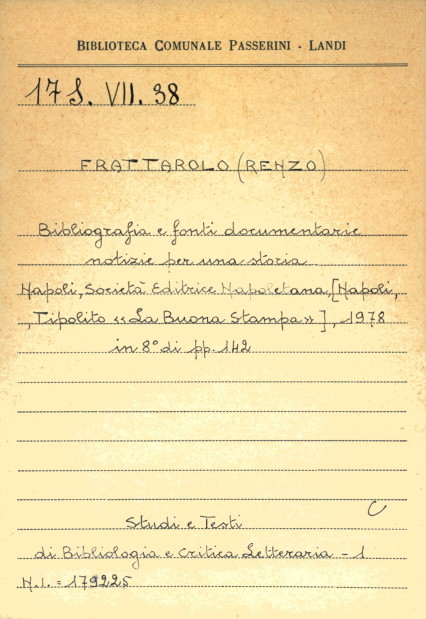 BIBLIOTECA COMUNALE PASSERINI - LANDI
17 S. VII. 38
FRATTAROLO (RENZO)
Bibliografia e fonti documentarie
notizie per una storia
Napoli, Società Editrice Napoletana, [Napoli,
, Tipolito «La Buona Stampa»], 1978
in 8° di pp. 142
C
Studi e Testi
di Bibliologia e Critica Letteraria - 1
N.I. = 179225